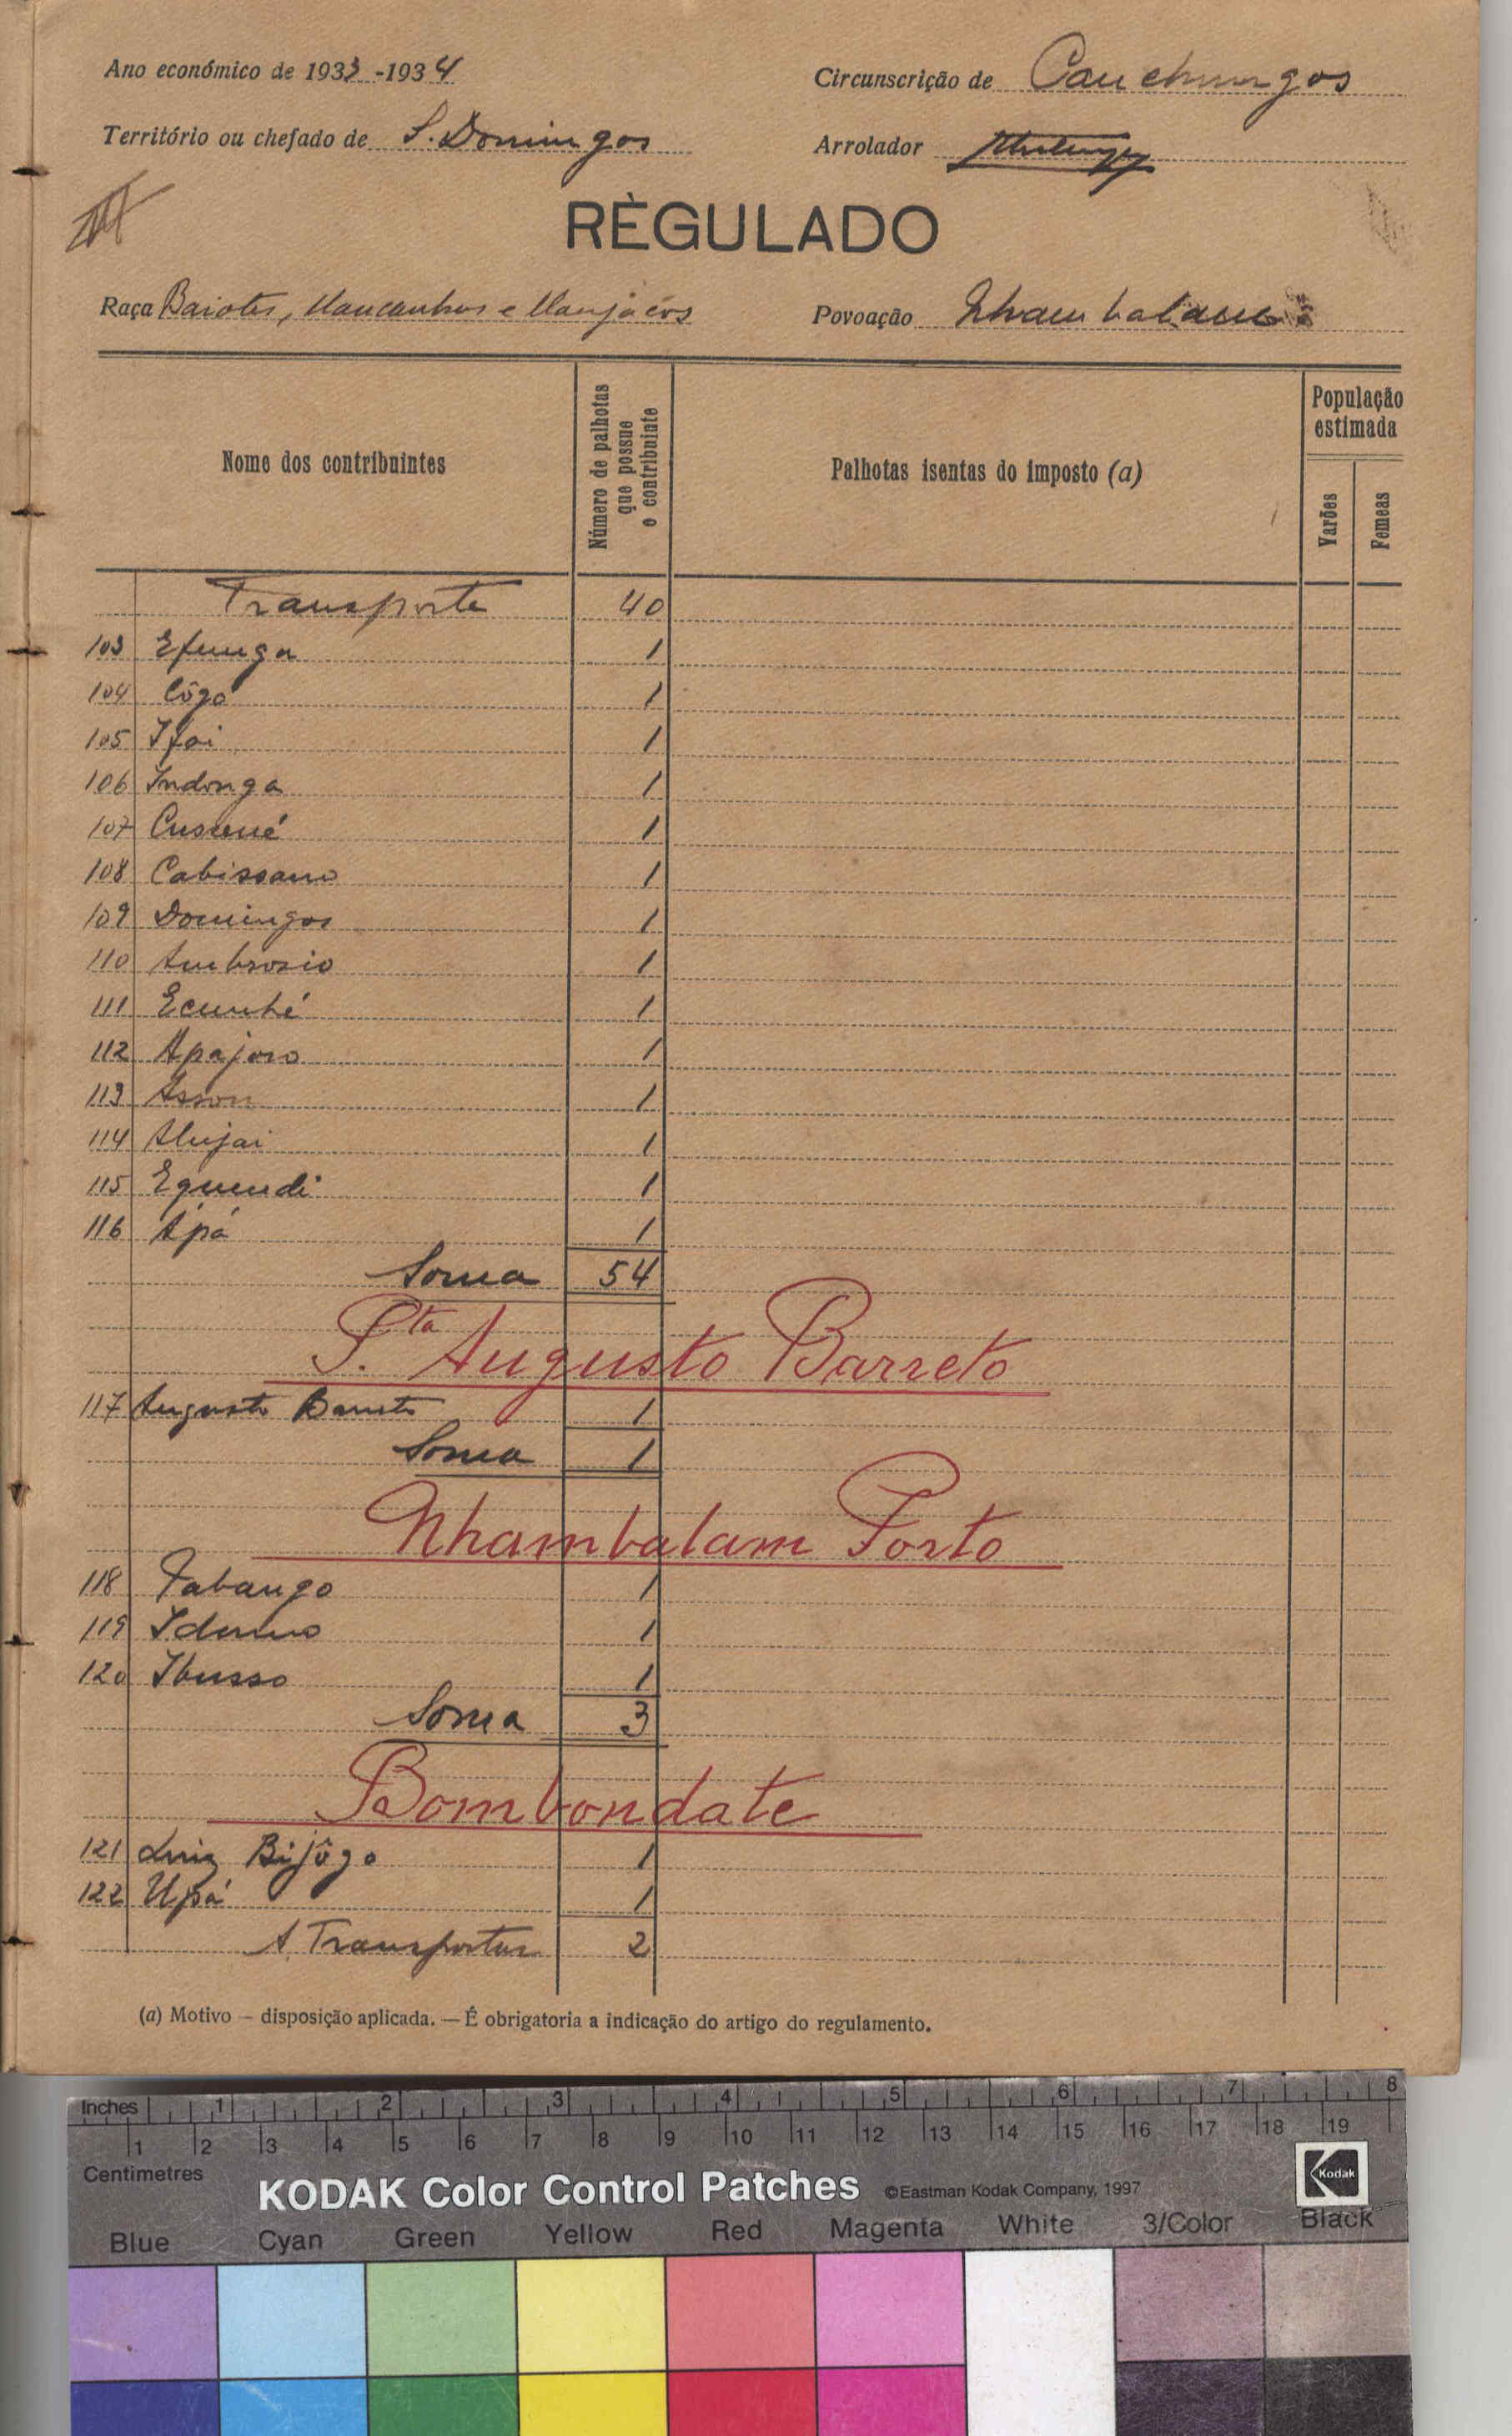 Ano económico de 1933-1934
Circunscrição de Canchungos
Território ou chefado de S. Domingos
Arrolador
RÈGULADO
Raça Baiotes, Mancanhas e Manjacos
Povoação Nhambalam
Nome dos contribuintes
Número de palhotas que possue o contribuinte
Palhotas isentas do imposto (a)
População estimada
Varões
Femeas
Transporte 40
103 Efunga 1
104 Côgo 1
105 Ifai 1
106 Indonga 1
107 1
108 Cabissano 1
109 Domingos 1
110 Ambrosio 1
111 Ecunhé 1
112 Apajoro 1
113 Asson 1
114 Alujai 1
115 Equendi 1
116 Apá 1
Soma 54
P.ta Augusto Barreto
117 Augusto Barreto 1
Soma 1
Nhambalam Porto
118 Tabango 1
119 1
120 Ibusso 1
Soma 3
Bombondate
121 Luiz Bijôgo 1
122 Upá 1
A Transportar 2
(a) Motivo — disposição aplicada. — É obrigatoria a indicação do artigo do regulamento.
Inches 1 2 3 4 5 6 7 8
1 2 3 4 5 6 7 8 9 10 11 12 13 14 15 16 17 18 19
Centimetres
KODAK Color Control Patches ©Eastman Kodak Company, 1997 Kodak
Blue Cyan Green Yellow Red Magenta White 3/Color Black